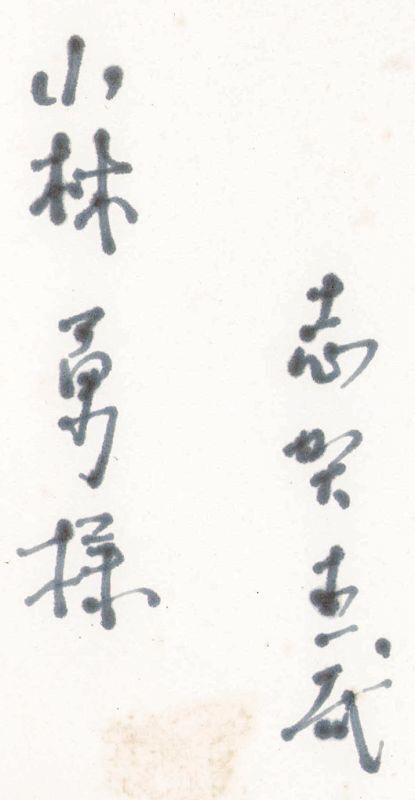 志賀直哉
小林勇様